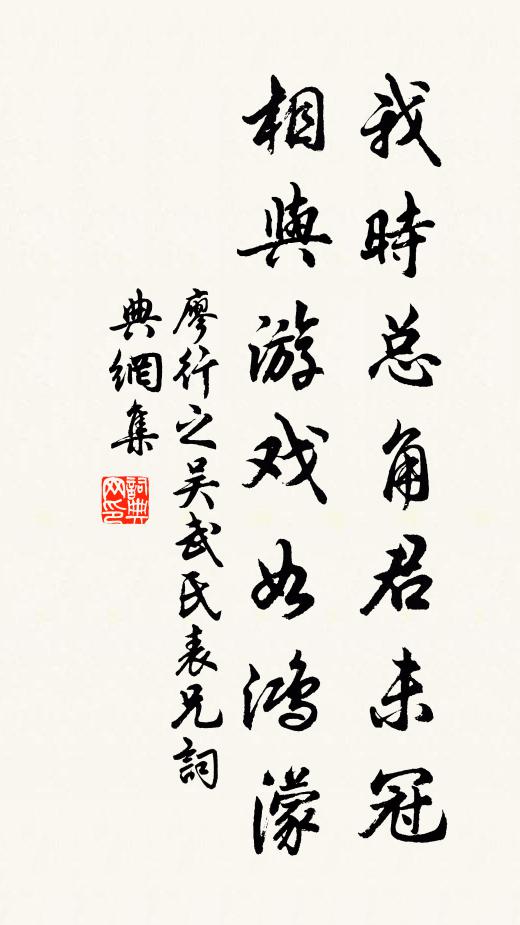 我時总角君未冠
相與游戏如鸿濛
廖行之吴武氏表兄詞
典網集
詞典
网印